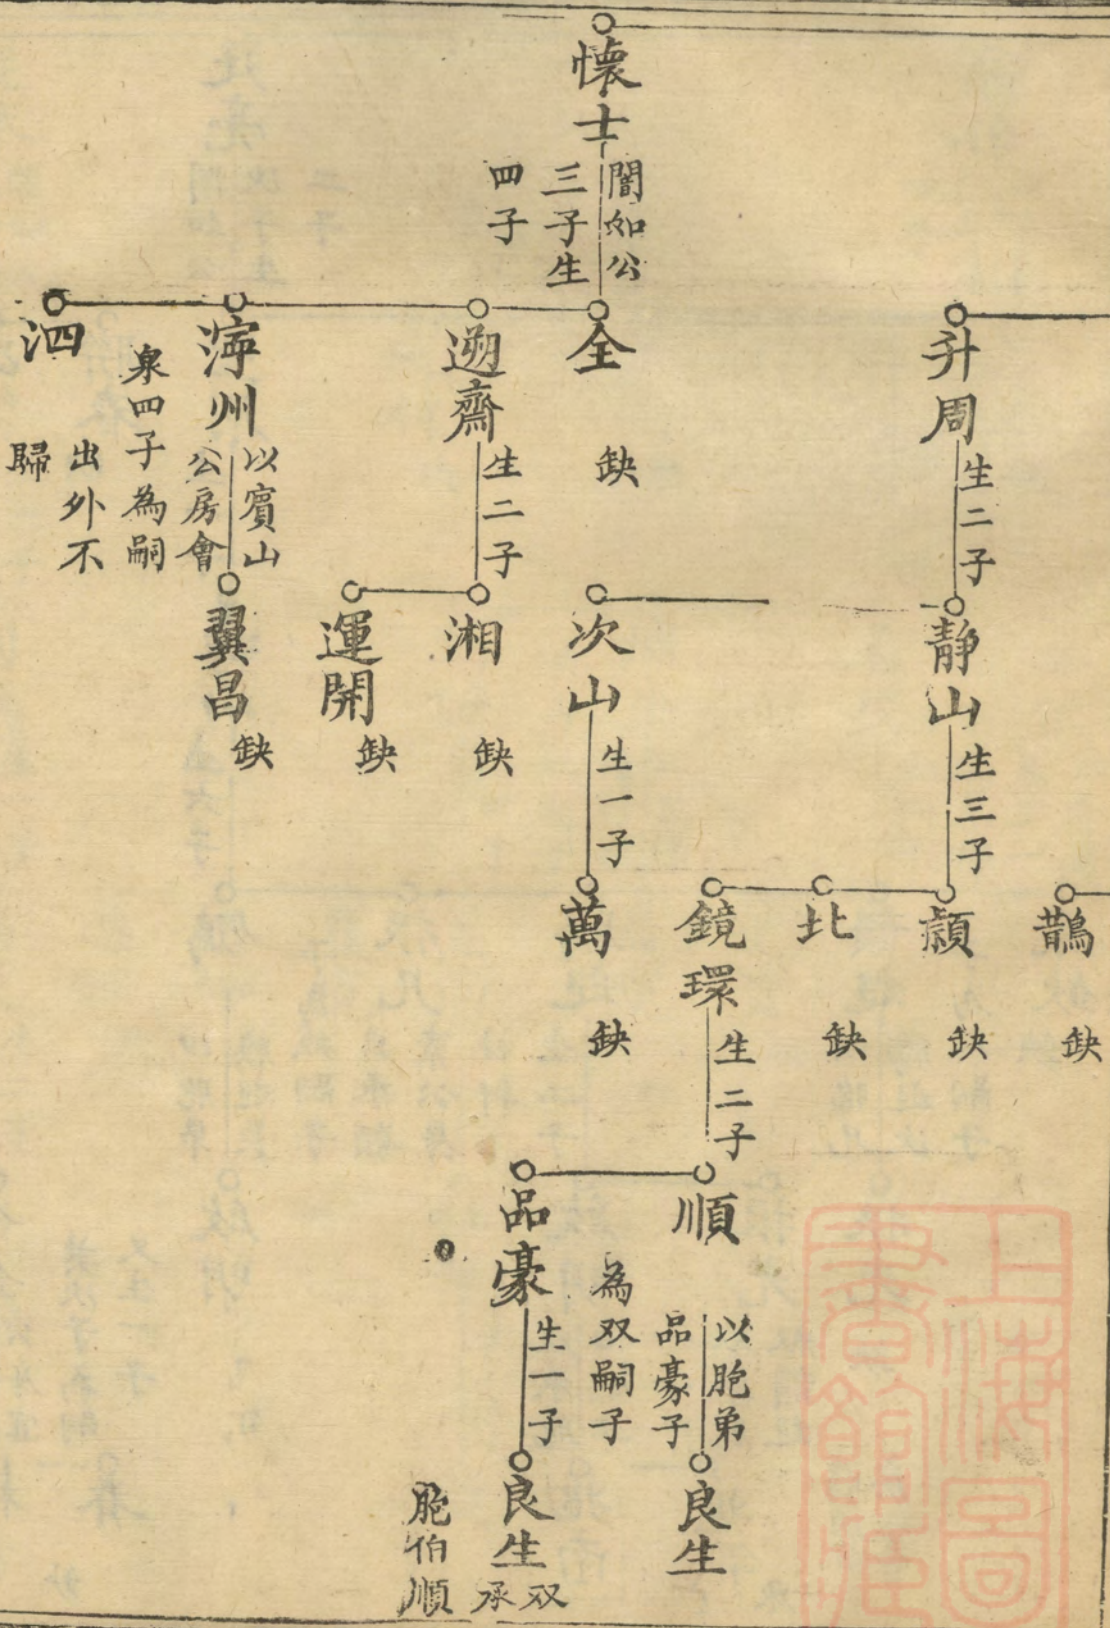 懷士
闇如公
三子生
四子
升周
生二子
全
缺
遡齋
生二子
濘州
以賓山
公房會
泉四子為嗣
泗
出外不
歸
靜山
生三子
次山
生一子
湘
缺
運開
缺
翼昌
缺
鵲
缺
顏
缺
北
缺
鏡環
生二子
萬
缺
順
以胞弟
品豪子
為双嗣子
品豪
生一子
良生
良生
双
承
胞伯順
上海圖
書館藏